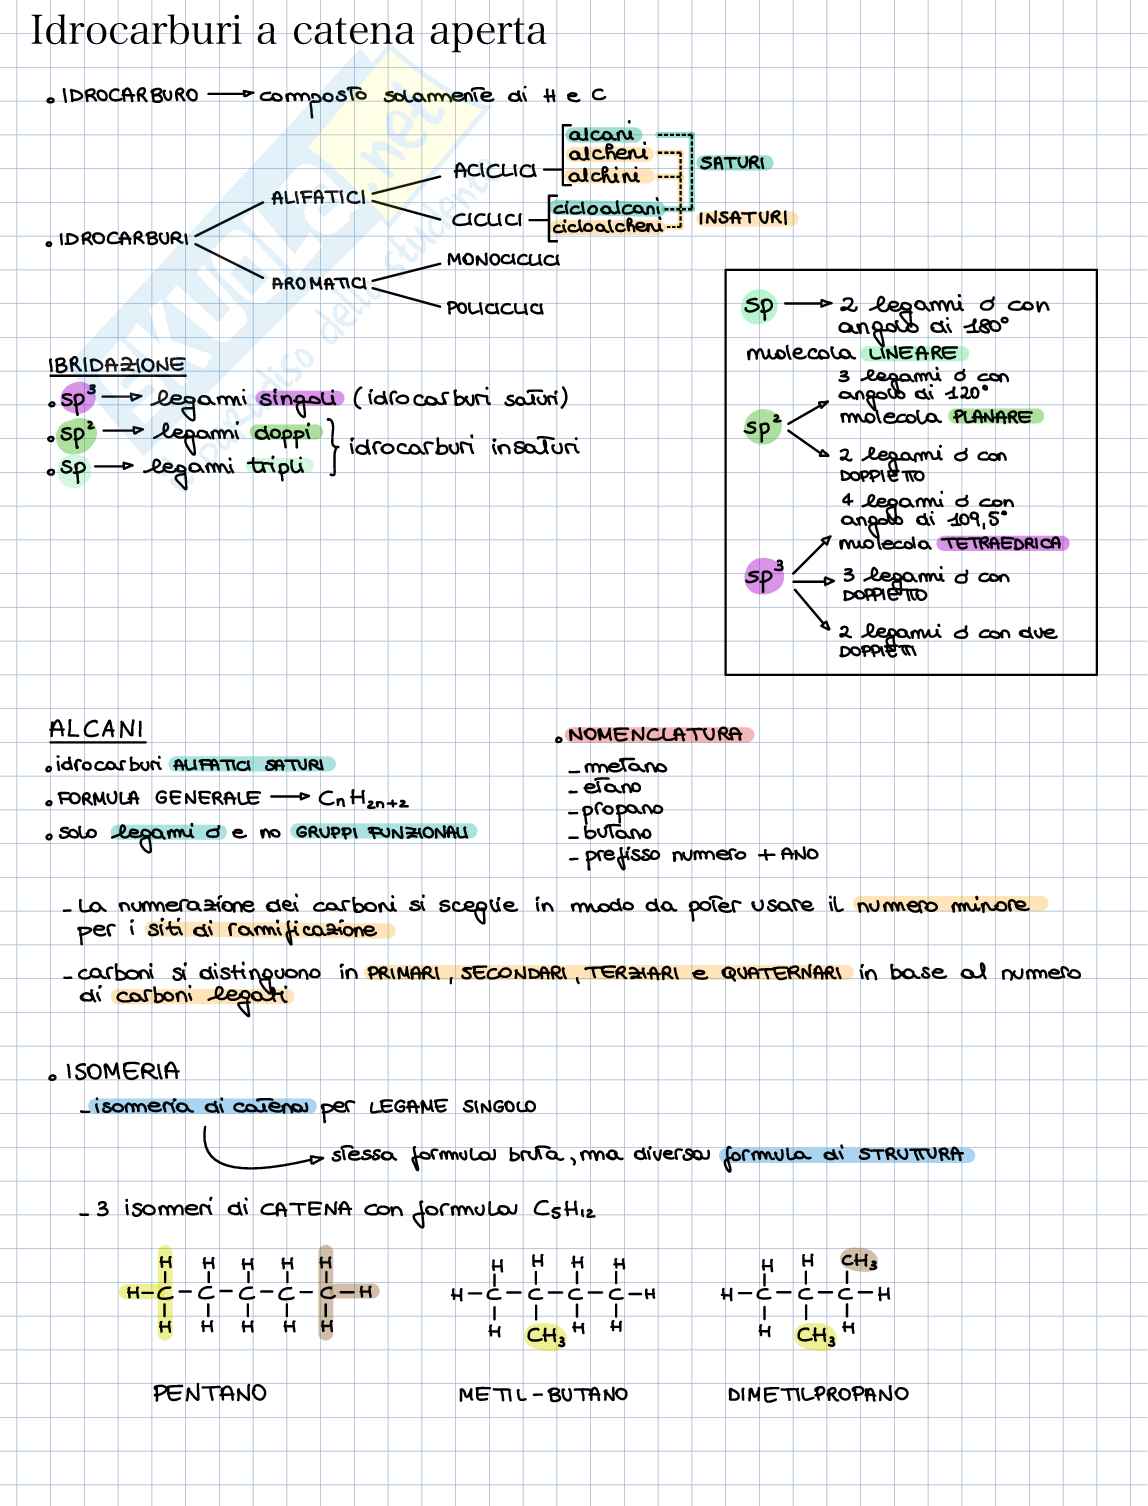 Idrocarburi a catena aperta
• IDROCARBURO → composto solamente di H e C
• IDROCARBURI
ALIFATICI
ACICLICI
alcani
alcheni
alchini
CICLICI
cicloalcani
cicloalcheni
SATURI
INSATURI
AROMATICI
MONOCICLICI
POLICICLICI
IBRIDAZIONE
• sp³ → legami singoli (idrocarburi saturi)
• sp² → legami doppi
• sp → legami tripli
idrocarburi insaturi
sp → 2 legami σ con
angolo di 180°
molecola LINEARE
sp²
3 legami σ con
angolo di 120°
molecola PLANARE
2 legami σ con
DOPPIETTO
sp³
4 legami σ con
angolo di 109,5°
molecola TETRAEDRICA
3 legami σ con
DOPPIETTO
2 legami σ con due
DOPPIETTI
ALCANI
• idrocarburi ALIFATICI SATURI
• FORMULA GENERALE → CnH2n+2
• solo legami σ e no GRUPPI FUNZIONALI
• NOMENCLATURA
- metano
- etano
- propano
- butano
- prefisso numero + ANO
- La numerazione dei carboni si sceglie in modo da poter usare il numero minore
per i siti di ramificazione
- carboni si distinguono in PRIMARI, SECONDARI, TERZIARI e QUATERNARI in base al numero
di carboni legati
• ISOMERIA
- isomeria di catena per LEGAME SINGOLO
stessa formula bruta, ma diversa formula di STRUTTURA
- 3 isomeri di CATENA con formula C5H12
H H H H H
H-C-C-C-C-C-H
H H H H H
PENTANO
H H H H
H-C-C-C-C-H
H CH3 H H
METIL-BUTANO
H H CH3
H-C-C-C-H
H CH3 H
DIMETILPROPANO
SKUOLA.net